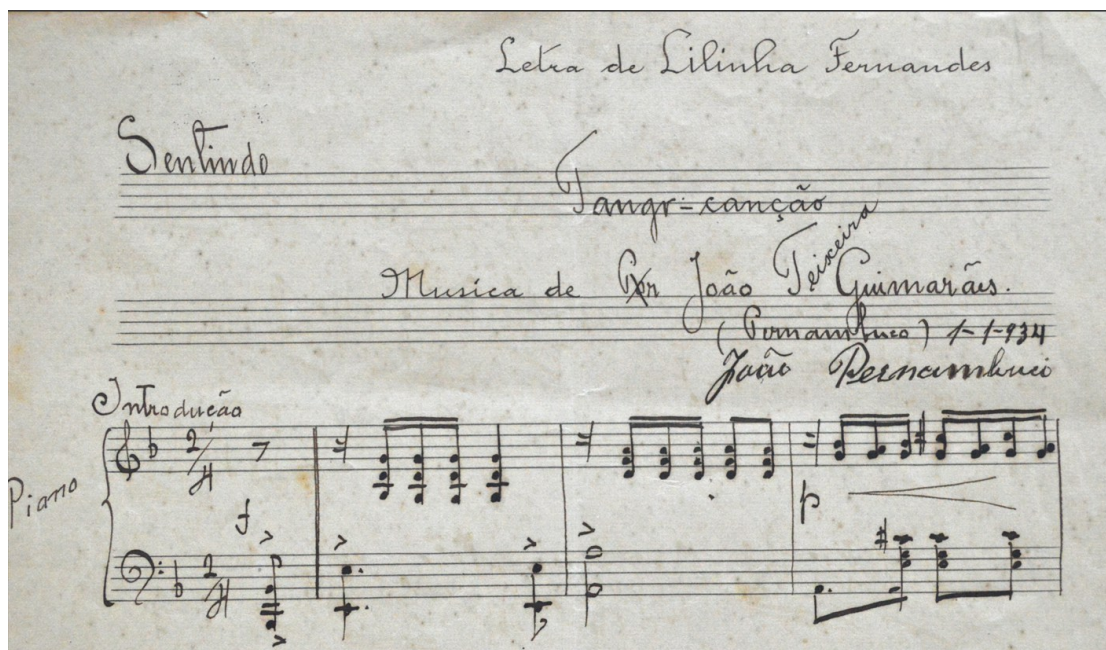 Letra de Lilinha Fernandes
Sentindo
Tango-canção
Musica de João Teixeira Guimarães.
(Pernambuco) 1-1-934
João Pernambuco
Introdução
Piano
2/4
f
2/4
p